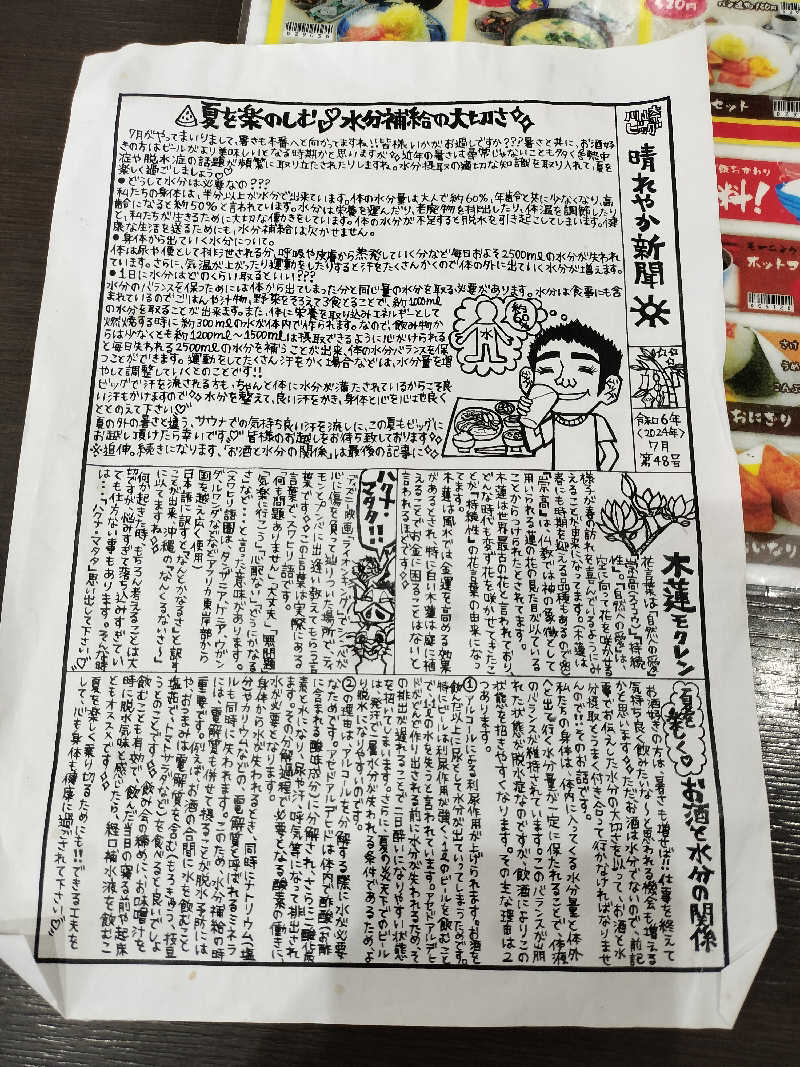 夏を楽のしむ♡水分補給の大切さ
ハレ晴レ
ビッグ
晴れやか新聞
令和6年
〈2024年〉
7月
第48号
7月がやってまいりまして、暑さも本番へと向かってますね!!皆様いかがお過しですか???暑さと共に、お酒好
きの方はビールがより美味しいとなる時期かと思いますが、近年の暑さは尋常じゃないことも多く、熱中
症や脱水症の話題が頻繁に取り立たされたりしますね。水分摂取の適切な知識を取り入れて、夏を
楽しく過ごしましょう♡
●どうして水分は必要なの???
私たちの身体は、半分以上が水分で出来ています。体の水分量は大人で約60%、年齢と共に少なくなり、高
齢会になると約50%と言われています。水分は栄養を運んだり、老廃物を排出したり、体温を調節したり
と、私たちが生きるために大切な働きをしています。体の水分が不足すると脱水を引き起こしてしまいます。健
康な生活を送るためにも、水分補給は欠かせません。
●身体から出ていく水分について。
体は尿や便として排泄される分、呼吸や皮膚から蒸発していく分など毎日およそ2500mlの水分が失われ
ています。さらに、気温が上がったり運動をしたりすると汗をたくさんかくので体の外に出ていく水分が増えます。
●1日に水分はどのくらい取るといい???
水分のバランスを保つためには体から出てしまった分と同じ量の水分を取る必要があります。水分は食事にも含
まれているのでごはんや汁物、野菜をそろえて3食とることで、約1000ml
の水分を取ることが出来ます。また、体に栄養を取り込みエネルギーとして
燃焼する時に約300mlの水が体内で作られます。なので、飲み物か
らは少なくとも約1200ml〜1500mlは摂取できるように心がけられる
と毎日失われる2500mlの水分を補うことが出来、体の水分バランスを保
つことができます。運動をしてたくさん汗をかく場合などは、水分量を増
やして調整していくとのことです!!
ビッグで汗を流される方も、ちゃんと体に水分が満たされているからこそ良
い汗もかけますので水分を整えて、良い汗をかき、身体も心も心地良く
ととのえて下さい♡
夏の外の暑さと違う、サウナでの気持ち良い汗を流しに、この夏もビッグに
お越し頂けたら幸いです。皆様のお越しをお待ち致しております
※追伸。続きになります、「お酒と水分の関係」は最後の記事に
約60%
水
木蓮モクレン
花言葉は「自然への愛」
「崇高(スウコウ)」「持続
性」。「自然への愛」は、
空に向って花を咲かせる
様子が春の訪れを喜んでいるようにみ
えることが由来になってます。(木蓮は
春にも時期を迎える品種もあるので他)
「崇高」は、仏教では神の象徴として
用いられる蓮の花の見た目が似ている
ことからつけられたとされてます。
木蓮は世界最古の花と言われており、
どんな時代も欠かず花を咲かせてきたこ
とが「持続性」の花言葉の由来になっ
てます。
木蓮は風水では金運を高める効果
があるとされ、特に白い木蓮は庭に植
えることでお金に困ることはないと
言われるほどです
ハクナ・
マタタ!!
ディズニー映画「ライオンキング」で、シンバが
心に傷を負って辿りついた場所で、ティ
モンとプンバに出逢い教えてもらう言
葉ですこの言葉は実際にある
言葉でスワヒリ語です。
「何も問題ありません」「大丈夫」「無問題」
「気楽に行こう」「心配ない」「どうにかなる
さ」など…と言った意味があります。
(スワヒリ語圏は、タンザニア、ケニア、ウガン
ダ、ルワンダなどなどアフリカ東岸部から
国を越え広く使用)
日本語に訳すと、「なんとかなるさ」と訳す
ことが出来、沖縄の「なんくるないさ〜」
に似てますね
何か起きた時、もちろん考えることは大
切ですが、悩みすぎて落ち込みすぎてい
ても仕方がない事もあります。そんな時
は…、「ハクナ・マタタ」思い出して下さい♡
夏を楽しく♡
お酒と水分の関係
お酒好きの方は、暑さも増せば!!仕事を終えて
気持ち良く飲みたいな〜と思われる機会も増える
かと思いますただお酒は水分でないので、前記
事でお伝えした水分の大切さを以って、お酒と水
分摂取とうまく付き合って行かなければなりませ
んので!!そのお話です。
私たちの身体は、体内に入ってくる水分量と体外
へと出て行く水分量が一定に保たれることで、体液
のバランスが維持されています。このバランスが崩
れた状態が脱水症なのですが、飲酒によりこの
状態を招きやすくなります。その主な理由は2
つあります。
①アルコールによる利尿作用が上げられます。お酒を
飲んだ以上に尿として水分が出ていってしまうためです。
特にビールは利尿作用が強く、1Lのビールを飲むこと
で1.1Lの水を失うと言われています。アセドアルデヒ
ドがどんどん作り出される前に水分が失われるため、そ
の排出が遅れることで二日酔いになりやすい状態
を招いてしまいます。さらに、真夏の炎天下でのビール
は、発汗で二重水分が失われる条件であるため、よ
り脱水になりやすいのです。
②の理由はアルコールを分解する際に水が必要
なためです。アセドアルデヒドは体内で酢酸(お酢
に含まれる酸味成分)に分解され、さらに二酸化炭
素と水になり、尿や汗、呼気等になって排出され
ます。その分解過程で必要となる酸素の働きに、
水が必要となります。
身体から水が失われるとき、同時にナトリウム(塩
分)やカリウムなどの、電解質と呼ばれるミネラ
ルも同時に失われます。このため、水分補給の時
には、電解質も併せて摂ることが脱水予防には
重要です。例えば、お酒の合間に水を飲むこと
や、おつまみは電解質を含む(もろきゅう、枝豆
塩茹で、トマトサラダなど)を食べると良いでしょ
うとのことです飲み会の締めに、お味噌汁を
飲むことも有効で、飲んだ当日の寝る前や起床
時に脱水気味と感じたら、経口補水液を飲むこ
ともオススメです
夏を楽しく乗り切るためにも!!できる工夫を
して、心も身体も健康に過ごされて下さい♡
セット
ホットコ
さけ
うめ
おにぎり
いなり